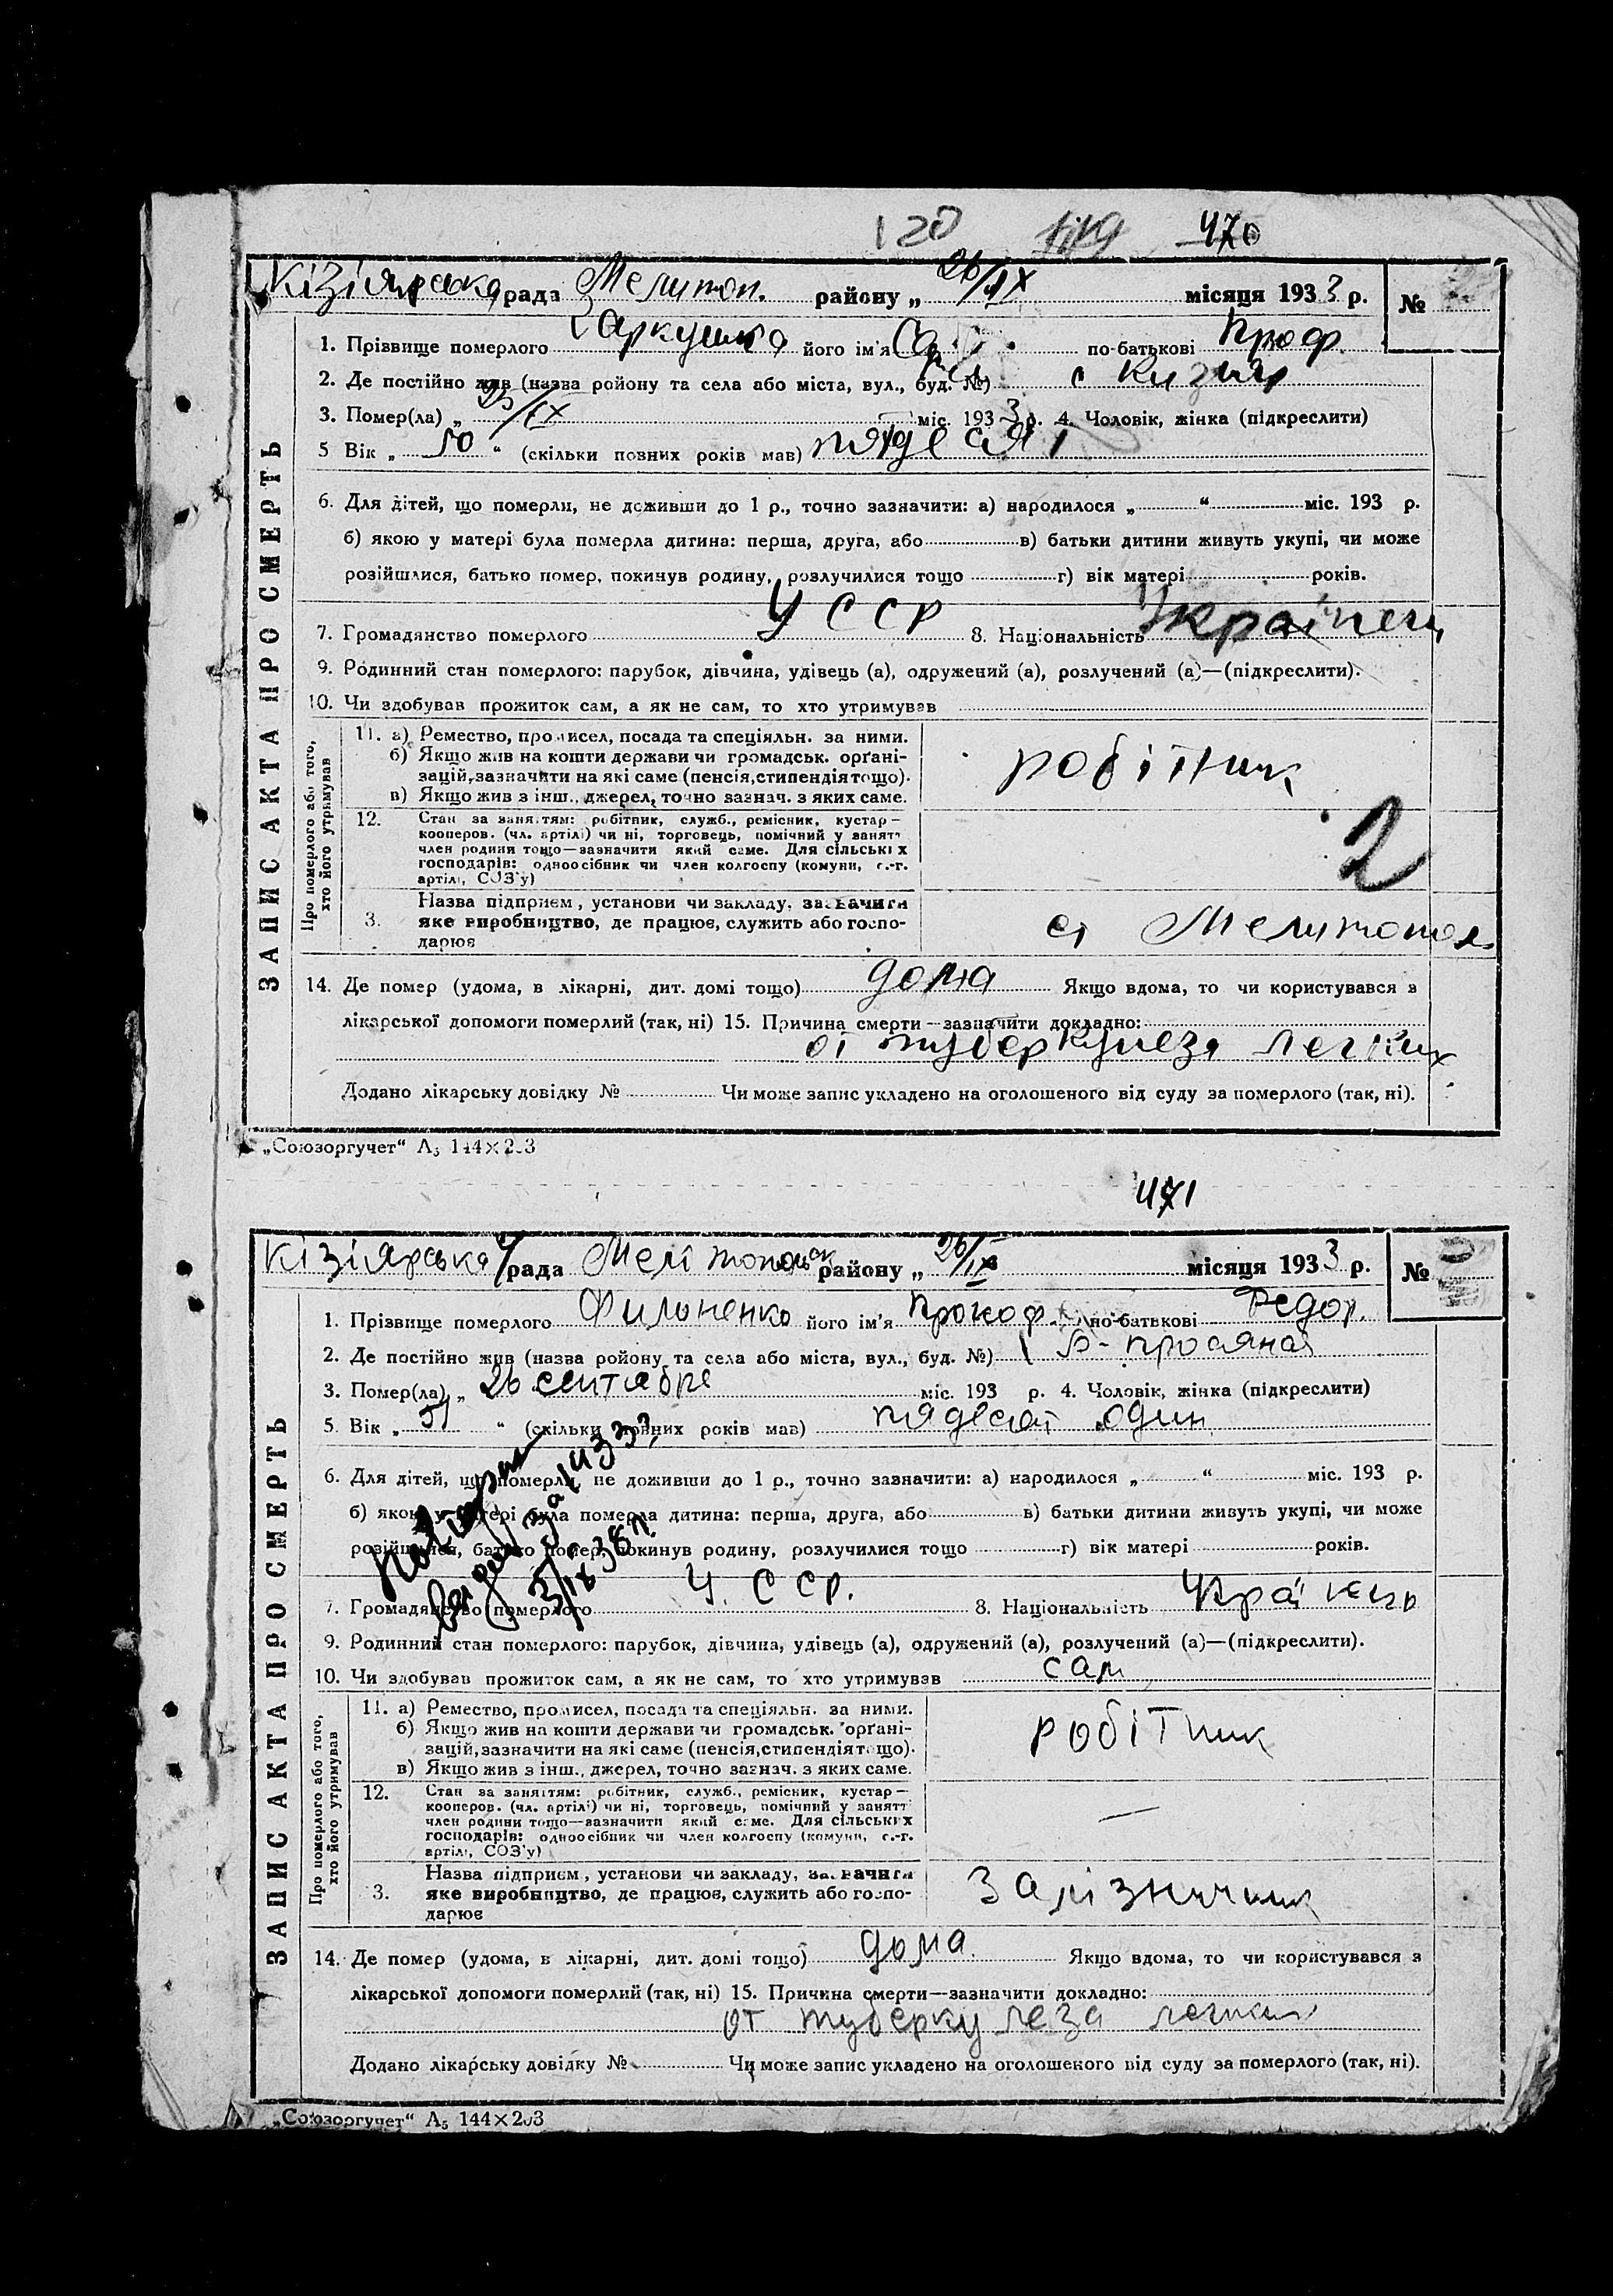 120 470
Кізіярська рада Мелитоп. району „ 26/IX місяця 1933 р. №
1. Прізвище померлого Заркушка його ім'я по-батькові Проф.
2. Де постійно жив (назва ройону та села або міста, вул., буд. №) с Кизияр
3. Помер(ла) „ 25/IX міс. 1933 р. 4. Чоловік, жінка (підкреслити)
5 Вік „ 50 “ (скільки повних років мав) пятдесят
6. Для дітей, що померли, не доживши до 1 р., точно зазначити: а) народилося „ “ міс. 193 р.
б) якою у матері була померла дитина: перша, друга, або в) батьки дитини живуть укупі, чи може
розійшлися, батько помер, покинув родину, розлучилися тощо г) вік матері років.
7. Громадянство померлого УССР 8. Національність Українец
9. Родинний стан померлого: парубок, дівчина, удівець (а), одружений (а), розлучений (а)—(підкреслити).
10. Чи здобував прожиток сам, а як не сам, то хто утримував
ЗАПИС АКТА ПРО СМЕРТЬ
Про померлого або того, хто його утримував
11. а) Ремество, промисел, посада та спеціяльн. за ними.
б) Якщо жив на кошти держави чи громадськ. орґані-
зацій, зазначити на які саме (пенсія, стипендія тощо).
в) Якщо жив з інш., джерел, точно зазнач. з яких саме.
робітник
12. Стан за заняттям: робітник, служб., ремісник, кустар—
кооперов. (чл. артілі) чи ні, торговець, помічний у занятт
член родини тощо—зазначити який саме. Для сільських
господарів: одноосібник чи член колгоспу (комуни, с.-г.
артілі, СОЗ'у)
2
3. Назва підприєм, установи чи закладу, зазначити
яке виробництво, де працює, служить або госпо-
дарює
ст Мелитополь
14. Де помер (удома, в лікарні, дит. домі тощо) дома Якщо вдома, то чи користувався з
лікарської допомоги померлий (так, ні) 15. Причина смерти—зазначити докладно:
от туберкулеза легких
Додано лікарську довідку № Чи може запис укладено на оголошеного від суду за померлого (так, ні).
„Союзоргучет“ А₅ 144×203
471
Кізіярська с/рада Мелітопольськ району „ 26/IX місяця 1933 р. №
1. Прізвище померлого Филоненко його ім'я Прокоф. по-батькові Федор.
2. Де постійно жив (назва ройону та села або міста, вул., буд. №) Б-просяная
3. Помер(ла) „ 26 сентября міс. 193 р. 4. Чоловік, жінка (підкреслити)
5. Вік „ 51 “ (скільки повних років мав) пядесят один
6. Для дітей, що померли, не доживши до 1 р., точно зазначити: а) народилося „ “ міс. 193 р.
б) якою у матері була померла дитина: перша, друга, або в) батьки дитини живуть укупі, чи може
розійшлися, батько помер, покинув родину, розлучилися тощо г) вік матері років.
7. Громадянство померлого У. ССР. 8. Національність Українець
9. Родинний стан померлого: парубок, дівчина, удівець (а), одружений (а), розлучений (а)—(підкреслити).
10. Чи здобував прожиток сам, а як не сам, то хто утримував сам
ЗАПИС АКТА ПРО СМЕРТЬ
Про померлого або того, хто його утримував
11. а) Ремество, промисел, посада та спеціяльн. за ними.
б) Якщо жив на кошти держави чи громадськ. орґані-
зацій, зазначити на які саме (пенсія, стипендія тощо).
в) Якщо жив з інш., джерел, точно зазнач. з яких саме.
робітник
12. Стан за заняттям: робітник, служб., ремісник, кустар—
кооперов. (чл. артілі) чи ні, торговець, помічний у занятт
член родини тощо—зазначити який саме. Для сільських
господарів: одноосібник чи член колгоспу (комуни, с.-г.
артілі, СОЗ'у)
—
3. Назва підприєм, установи чи закладу, зазначити
яке виробництво, де працює, служить або госпо-
дарює
Залізничник
14. Де помер (удома, в лікарні, дит. домі тощо) дома. Якщо вдома, то чи користувався з
лікарської допомоги померлий (так, ні) 15. Причина смерти—зазначити докладно:
от туберкулеза легких
Додано лікарську довідку № Чи може запис укладено на оголошеного від суду за померлого (так, ні).
„Союзоргучет“ А₅ 144×203